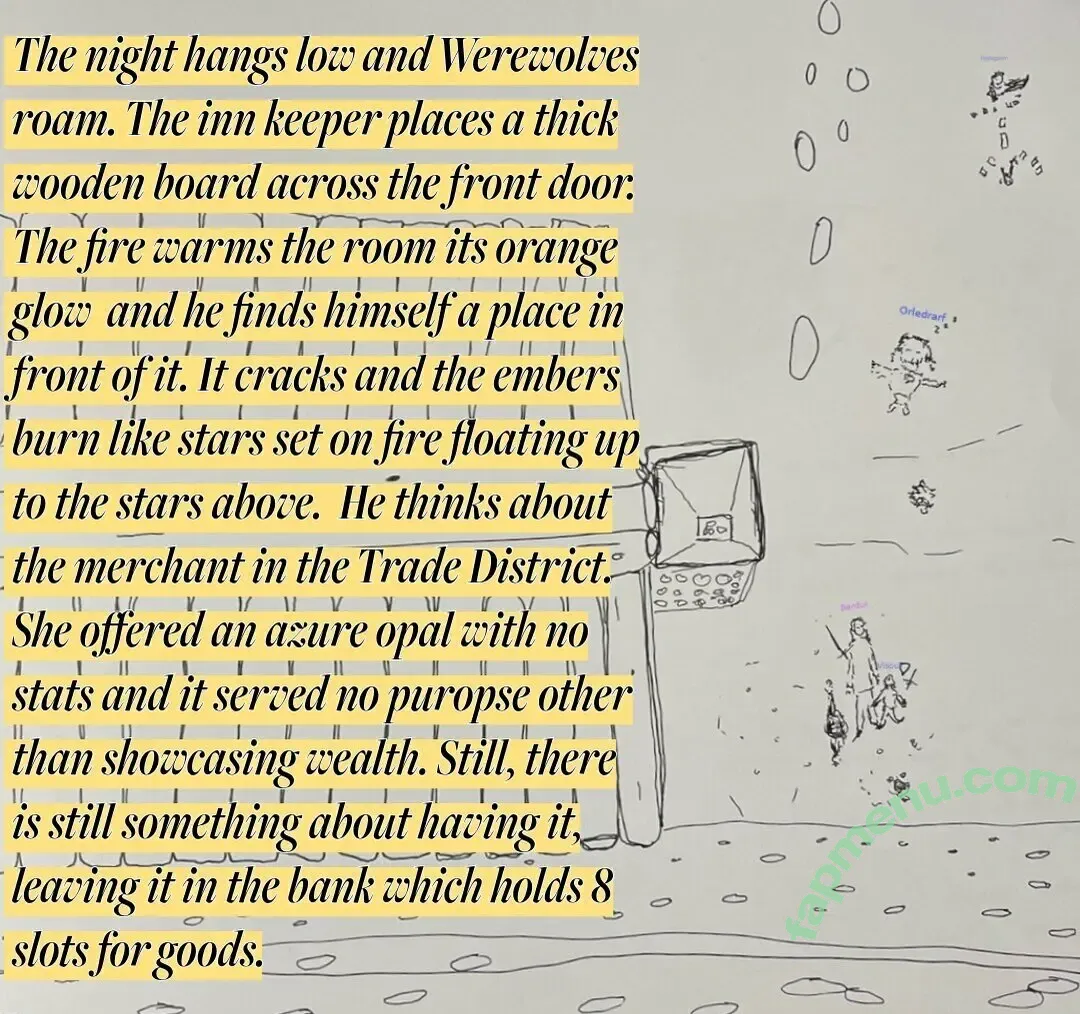 The night hangs low and Werewolves
roam. The inn keeper places a thick
wooden board across the front door.
The fire warms the room its orange
glow and he finds himself a place in
front of it. It cracks and the embers
burn like stars set on fire floating up
to the stars above. He thinks about
the merchant in the Trade District.
She offered an azure opal with no
stats and it served no puropse other
than showcasing wealth. Still, there
is still something about having it,
leaving it in the bank which holds 8
slots for goods.
Orledrarf
z z z
fapmenu.com